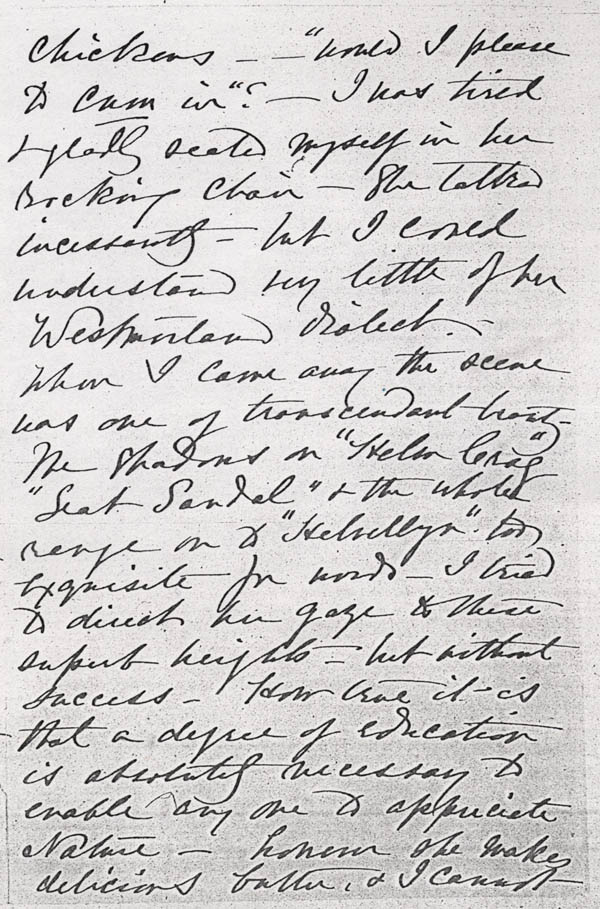 chickens – – "would I please
to cum in"? – I was tired
& gladly seated myself in her
rocking chair – She talked
incessantly – but I could
understand very little of her
Westmorland dialect. –
When I came away the scene
was one of transcendant beauty –
The shadows on "Helm Crag"
"Seat Sandal" & the whole
range on to "Helvellyn" too
exquisite for words – I tried
to direct her gaze to these
superb heights – but without
success – How true it is
that a degree of education
is absolutely necessary to
enable any one to appreciate
Nature – however she makes
delicious butter, & I cannot